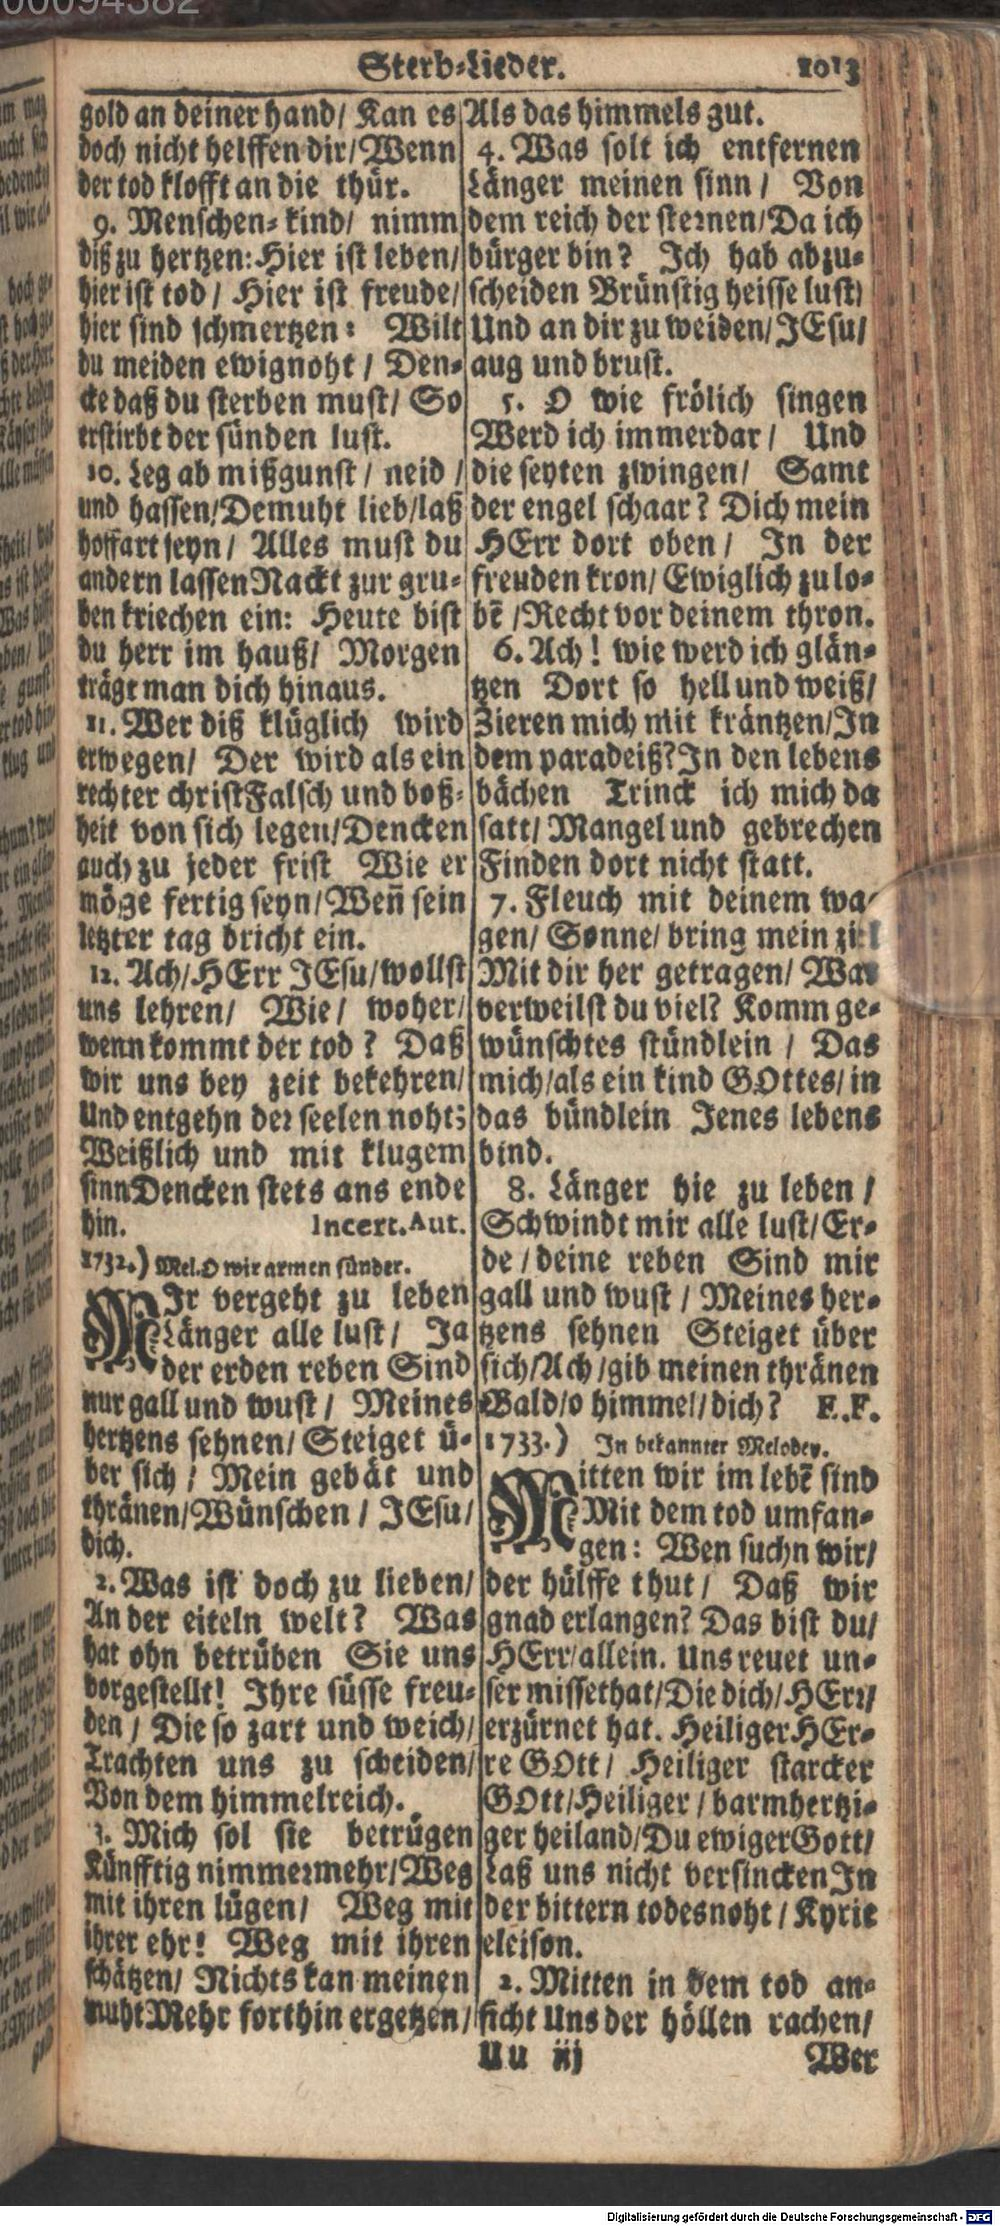 00094382
Sterb-Lieder. 1013
gold an deiner hand/ Kan es
doch nicht helffen dir/Wenn
der tod klofft an die thür.
9. Menschen-kind/ nimm
diß zu hertzen: Hier ist leben/
hier ist tod / Hier ist freude/
hier sind schmertzen: Wilt
du meiden ewignoht / Den-
cke daß du sterben must/ So
erstirbt der sünden lust.
10. Leg ab mißgunst / neid /
und hassen/Demuht lieb/laß
hoffart seyn / Alles must du
andern lassen Nackt zur gru-
ben kriechen ein: Heute bist
du herr im hauß/ Morgen
trägt man dich hinaus.
11. Wer diß klüglich wird
erwegen/ Der wird als ein
rechter christ Falsch und boß-
heit von sich legen/Dencken
auch zu jeder frist Wie er
möge fertig seyn/Weñ sein
letzter tag bricht ein.
12. Ach/HErr JEsu/wollst
uns lehren/ Wie/ woher/
wenn kommt der tod ? Daß
wir uns bey zeit bekehren/
Und entgehn der seelen noht;
Weißlich und mit klugem
sinn Dencken stets ans ende
hin. Incert. Aut.
1732.) Mel. O wir armen sünder.
MIr vergeht zu leben
Länger alle lust/ Ja
der erden reben Sind
nur gall und wust / Meines
hertzens sehnen/ Steiget ü-
ber sich / Mein gebät und
thränen/Wünschen / JEsu/
dich.
2. Was ist doch zu lieben/
An der eiteln welt? Was
hat ohn betrüben Sie uns
vorgestellt! Ihre süsse freu-
den / Die so zart und weich/
Trachten uns zu scheiden/
Von dem himmelreich.
3. Mich sol sie betrügen
Künfftig nimmermehr/Weg
mit ihren lügen/ Weg mit
ihrer ehr! Weg mit ihren
schätzen/ Nichts kan meinen
muht Mehr forthin ergetzen/
Als das himmels gut.
4. Was solt ich entfernen
Länger meinen sinn / Von
dem reich der sternen/Da ich
bürger bin? Ich hab abzu-
scheiden Brünstig heisse lust/
Und an dir zu weiden/JEsu/
aug und brust.
5. O wie frölich singen
Werd ich immerdar / Und
die seyten zwingen/ Samt
der engel schaar? Dich mein
HErr dort oben / In der
freuden kron/ Ewiglich zu lo-
bē /Recht vor deinem thron.
6. Ach! wie werd ich glän-
tzen Dort so hell und weiß/
Zieren mich mit kräntzen/In
dem paradeiß? In den lebens
bächen Trinck ich mich da
satt/ Mangel und gebrechen
Finden dort nicht statt.
7. Fleuch mit deinem wa-
gen/ Sonne/ bring mein ziel
Mit dir her getragen/ Was
verweilst du viel? Komm ge-
wünschtes stündlein / Das
mich/als ein kind GOttes/ in
das bündlein Jenes lebens
bind.
8. Länger hie zu leben /
Schwindt mir alle lust/Er-
de / deine reben Sind mir
gall und wust / Meines her-
tzens sehnen Steiget über
sich/Ach /gib meinen thränen
Bald/o himmel/dich? E.F.
1733.) In bekannter Melodey.
Mitten wir im lebē sind
Mit dem tod umfan-
gen: Wen suchn wir/
der hülffe thut / Daß wir
gnad erlangen? Das bist du/
HErr/allein. Uns reuet un-
ser missethat/Die dich/HErr/
erzürnet hat. Heiliger HEr-
re GOtt / Heiliger starcker
GOtt/Heiliger / barmhertzi-
ger heiland/Du ewiger Gott/
Laß uns nicht versincken In
der bittern todesnoht / Kyrie
eleison.
2. Mitten in dem tod an-
ficht Uns der höllen rachen/
Uu iij Wer
Digitalisierung gefördert durch die Deutsche Forschungsgemeinschaft - DFG